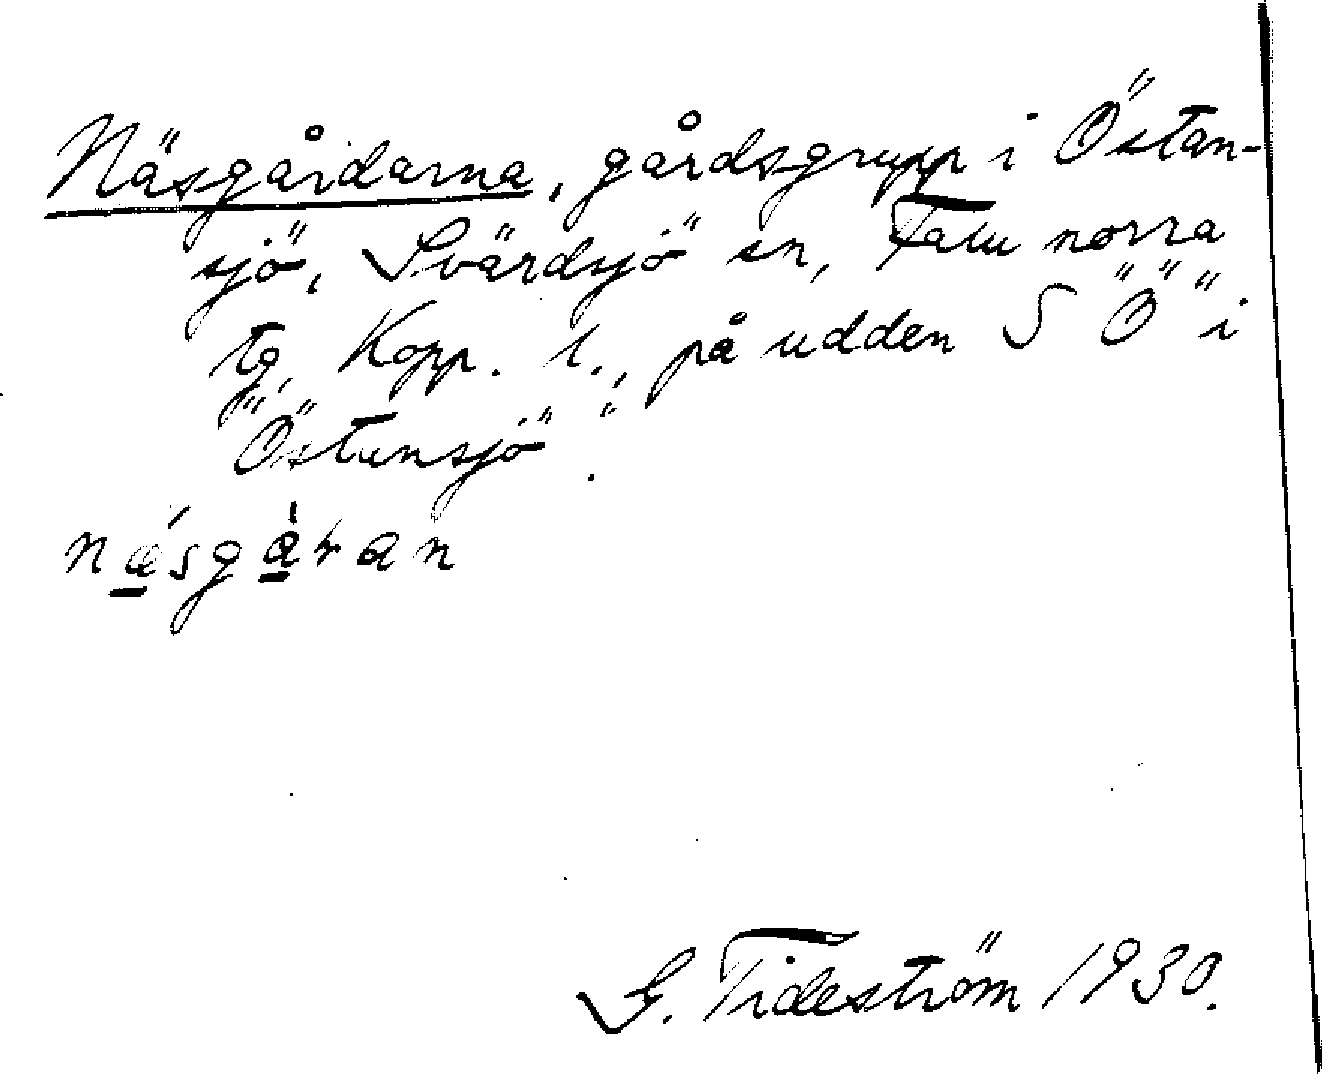 Näsgårdarna, gårdsgrupp i Östan-
sjö, Svärdsjö sn, Falu norra
tg, Kopp. l., på udden S Ö "i
Östansjö".
nǽ̲sgå̲̀ran
G. Tideström 1930.